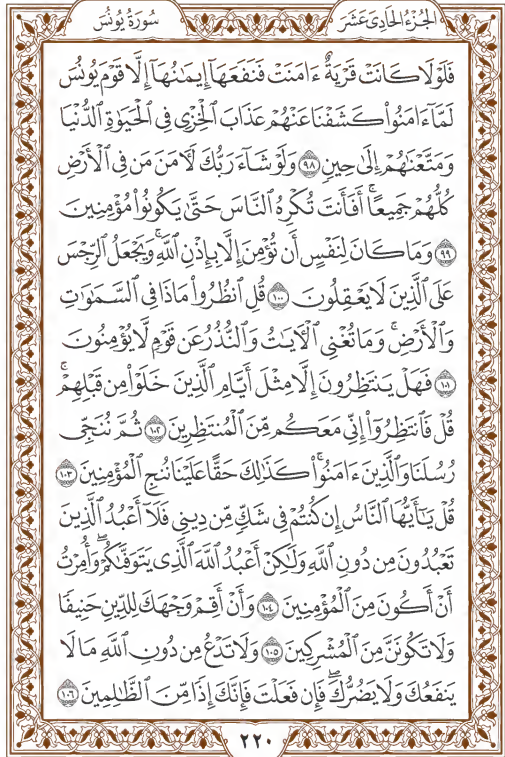 الجُزْءُ الحَادِى عَشَرَ
سُورَةُ يُونُسَ
فَلَوْلَا كَانَتْ قَرْيَةٌ ءَامَنَتْ فَنَفَعَهَآ إِيمَـٰنُهَآ إِلَّا قَوْمَ يُونُسَ
لَمَّآ ءَامَنُوا۟ كَشَفْنَا عَنْهُمْ عَذَابَ ٱلْخِزْىِ فِى ٱلْحَيَوٰةِ ٱلدُّنْيَا
وَمَتَّعْنَـٰهُمْ إِلَىٰ حِينٍ ٩٨ وَلَوْ شَآءَ رَبُّكَ لَـَٔامَنَ مَن فِى ٱلْأَرْضِ
كُلُّهُمْ جَمِيعًا ۚ أَفَأَنتَ تُكْرِهُ ٱلنَّاسَ حَتَّىٰ يَكُونُوا۟ مُؤْمِنِينَ
٩٩ وَمَا كَانَ لِنَفْسٍ أَن تُؤْمِنَ إِلَّا بِإِذْنِ ٱللَّهِ ۚ وَيَجْعَلُ ٱلرِّجْسَ
عَلَى ٱلَّذِينَ لَا يَعْقِلُونَ ١٠٠ قُلِ ٱنظُرُوا۟ مَاذَا فِى ٱلسَّمَـٰوَٰتِ
وَٱلْأَرْضِ ۚ وَمَا تُغْنِى ٱلْـَٔايَـٰتُ وَٱلنُّذُرُ عَن قَوْمٍ لَّا يُؤْمِنُونَ
١٠١ فَهَلْ يَنتَظِرُونَ إِلَّا مِثْلَ أَيَّامِ ٱلَّذِينَ خَلَوْا۟ مِن قَبْلِهِمْ ۚ
قُلْ فَٱنتَظِرُوٓا۟ إِنِّى مَعَكُم مِّنَ ٱلْمُنتَظِرِينَ ١٠٢ ثُمَّ نُنَجِّى
رُسُلَنَا وَٱلَّذِينَ ءَامَنُوا۟ ۚ كَذَٰلِكَ حَقًّا عَلَيْنَا نُنجِ ٱلْمُؤْمِنِينَ ١٠٣
قُلْ يَـٰٓأَيُّهَا ٱلنَّاسُ إِن كُنتُمْ فِى شَكٍّ مِّن دِينِى فَلَآ أَعْبُدُ ٱلَّذِينَ
تَعْبُدُونَ مِن دُونِ ٱللَّهِ وَلَـٰكِنْ أَعْبُدُ ٱللَّهَ ٱلَّذِى يَتَوَفَّىٰكُمْ ۖ وَأُمِرْتُ
أَنْ أَكُونَ مِنَ ٱلْمُؤْمِنِينَ ١٠٤ وَأَنْ أَقِمْ وَجْهَكَ لِلدِّينِ حَنِيفًا
وَلَا تَكُونَنَّ مِنَ ٱلْمُشْرِكِينَ ١٠٥ وَلَا تَدْعُ مِن دُونِ ٱللَّهِ مَا لَا
يَنفَعُكَ وَلَا يَضُرُّكَ ۖ فَإِن فَعَلْتَ فَإِنَّكَ إِذًا مِّنَ ٱلظَّـٰلِمِينَ ١٠٦
٢٢٠